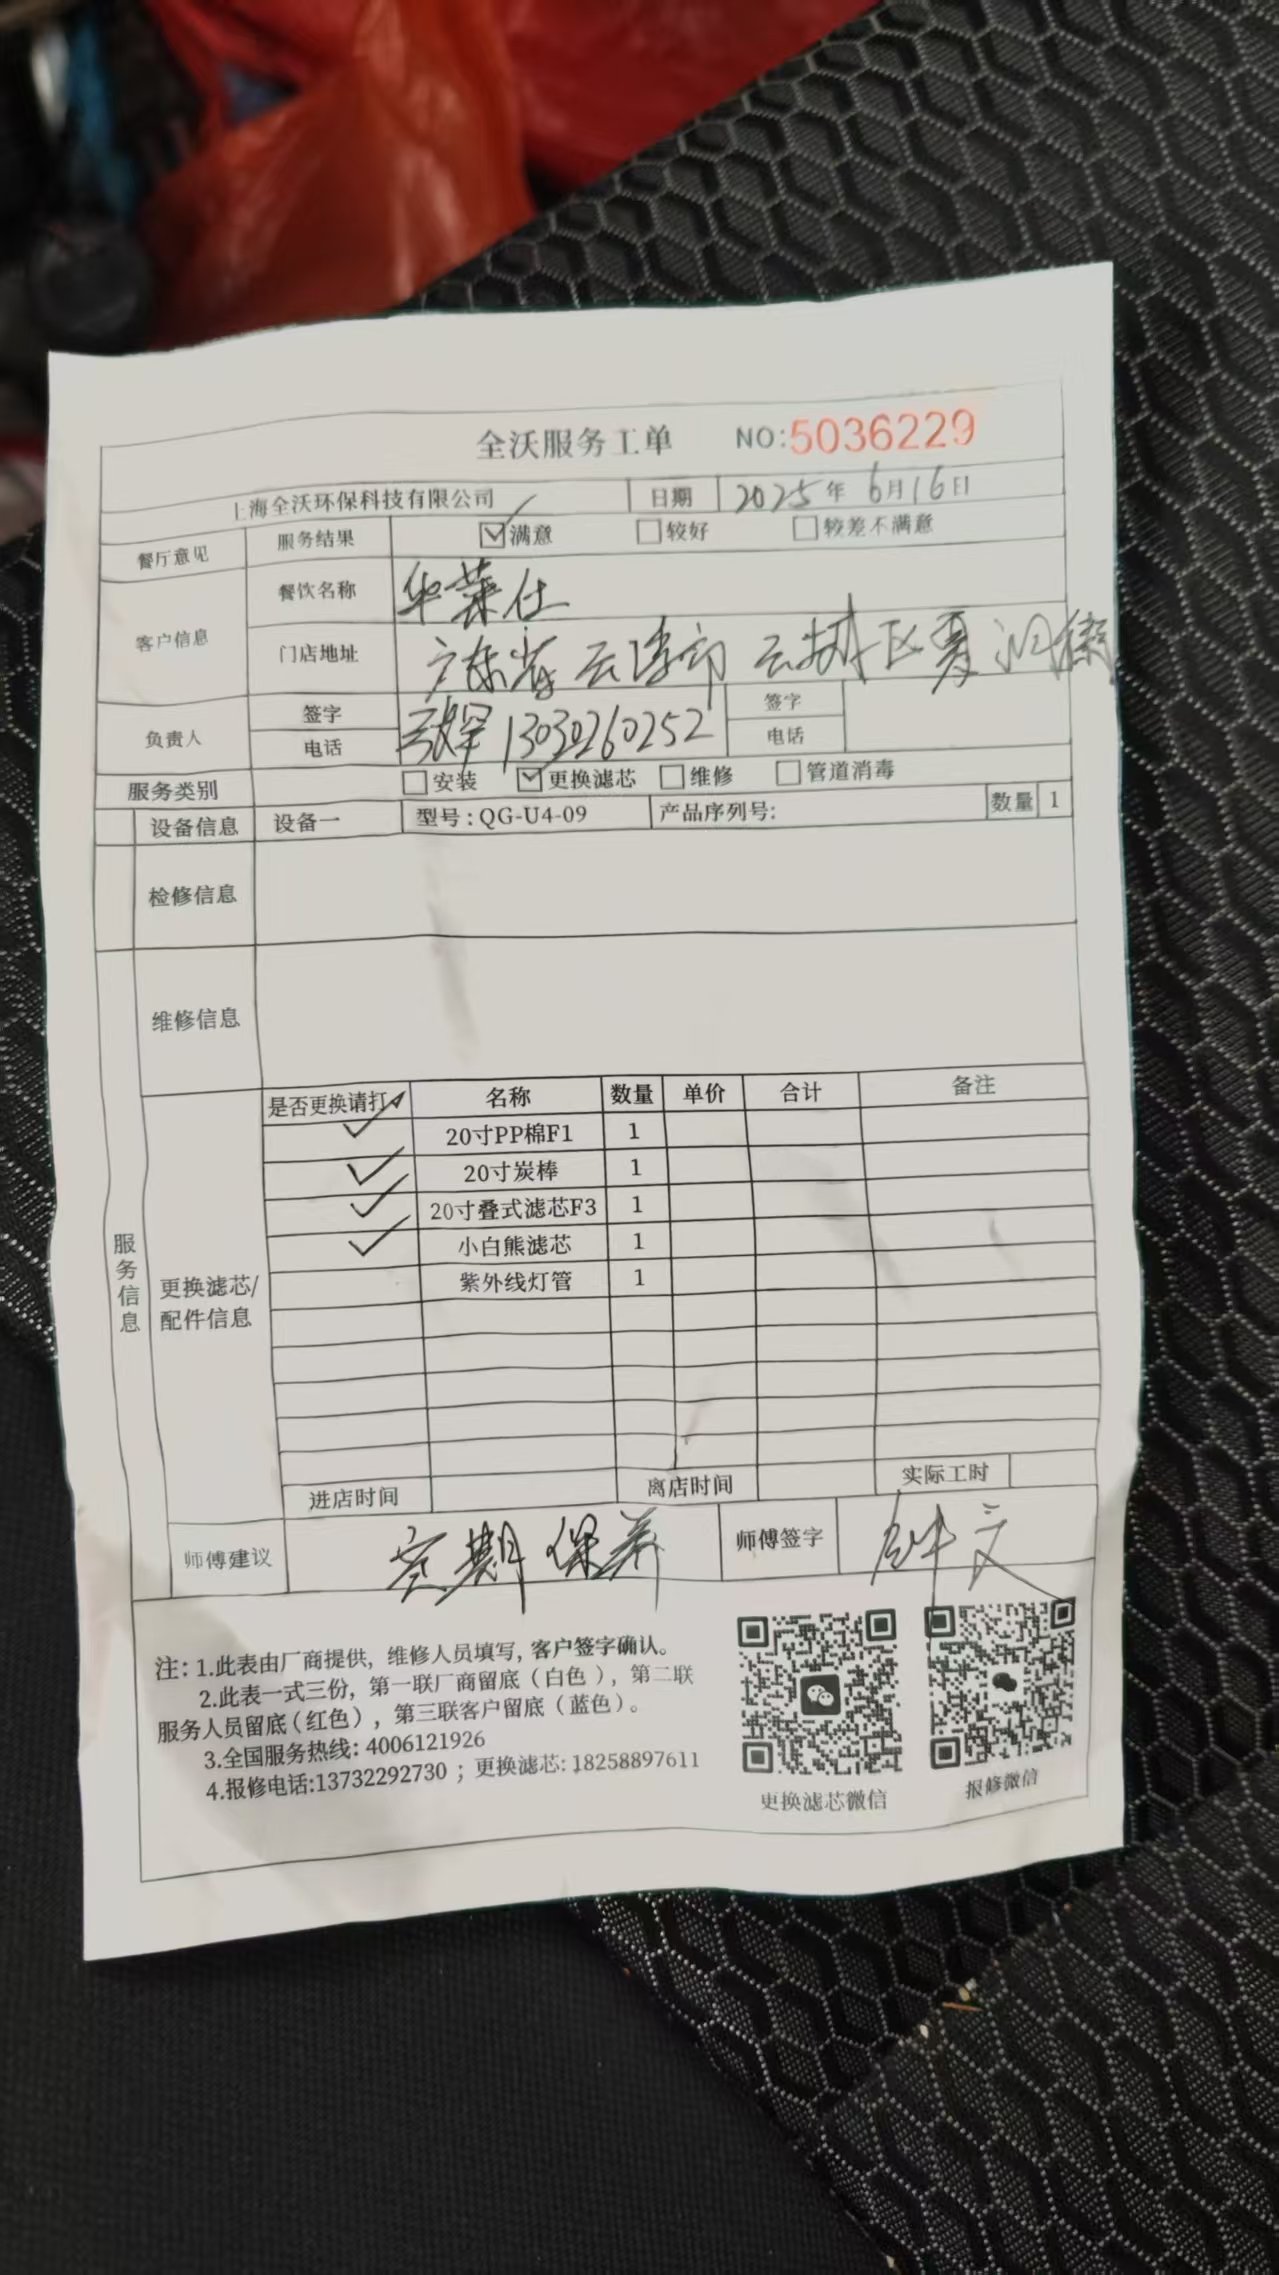 全沃服务工单 NO:5036229
上海全沃环保科技有限公司 日期 2025年6月16日
餐厅意见 服务结果 满意 较好 较差不满意
客户信息 餐饮名称 华莱仕
门店地址 广东省云浮市云城区夏洞镇
负责人 签字 签字
电话 13030260252 电话
服务类别 安装 更换滤芯 维修 管道消毒
设备信息 设备一 型号:QG-U4-09 产品序列号: 数量 1
检修信息
维修信息
服务信息
更换滤芯/
配件信息
是否更换请打✓ 名称 数量 单价 合计 备注
✓ 20寸PP棉F1 1
✓ 20寸炭棒 1
✓ 20寸叠式滤芯F3 1
✓ 小白熊滤芯 1
紫外线灯管 1
进店时间 离店时间 实际工时
师傅建议 定期保养 师傅签字 钟文
注: 1.此表由厂商提供, 维修人员填写, 客户签字确认。
2.此表一式三份, 第一联厂商留底(白色), 第二联
服务人员留底(红色), 第三联客户留底(蓝色)。
3.全国服务热线: 4006121926
4.报修电话:13732292730 ; 更换滤芯: 18258897611
更换滤芯微信 报修微信